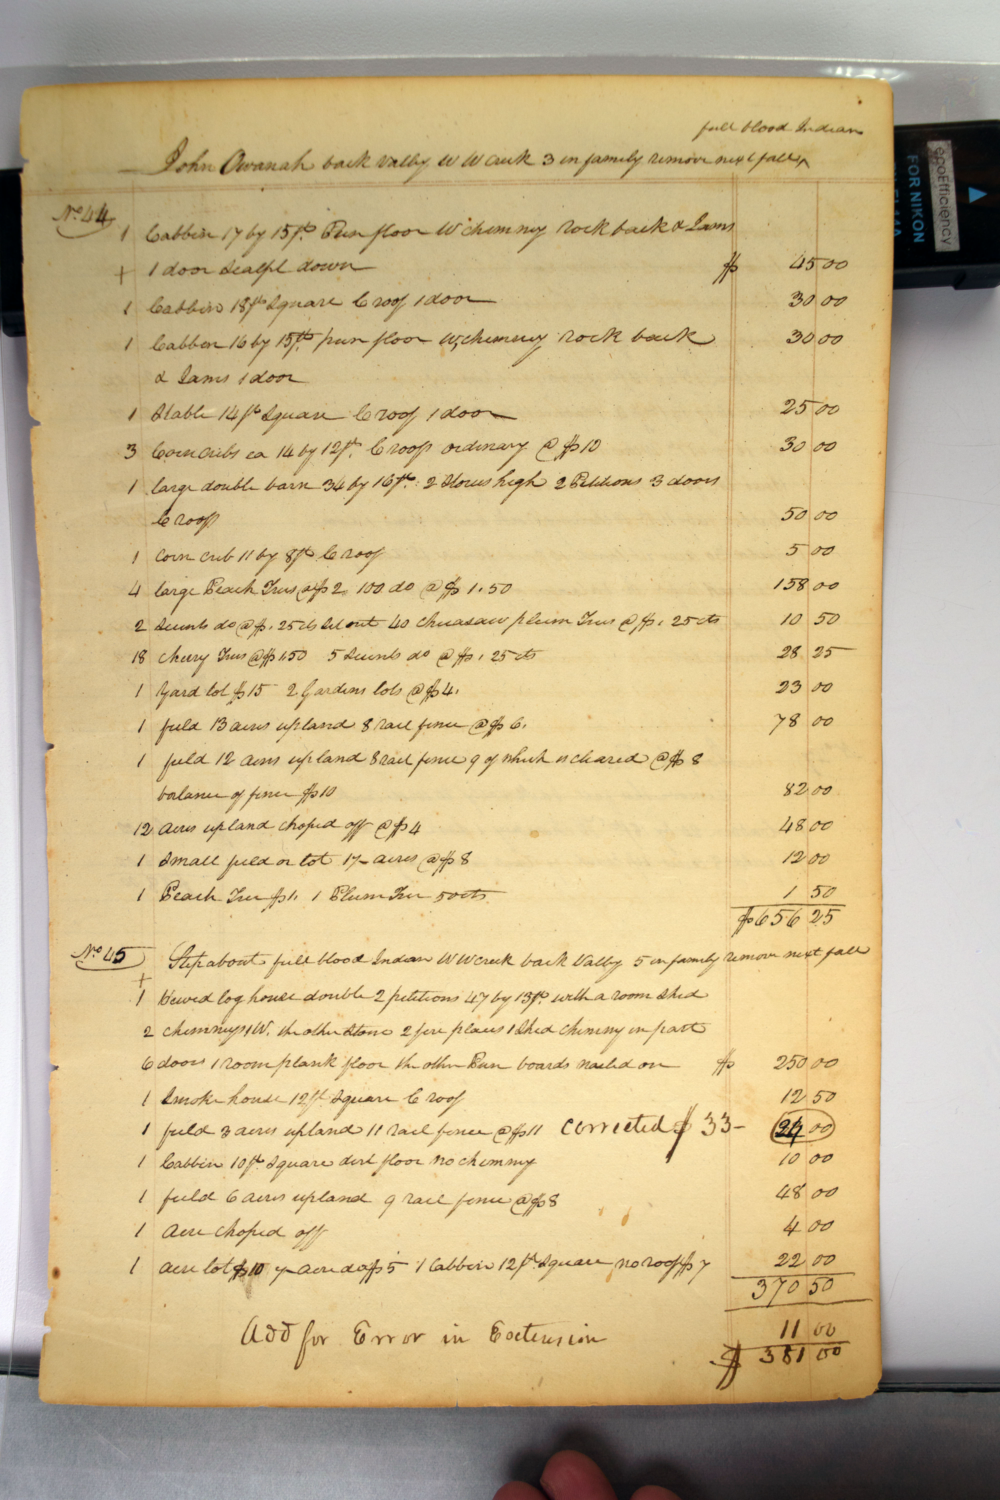 full blood Indian
John Owanah back Valley W W Creek 3 in family remove next fall ^
No. 44
1 Cabbin 17 by 15 ft. Pun floor W chimney rock back & Jams
+ 1 door Scalpd down $ 45 00
1 Cabbin 18 ft Square C roof 1 door 30 00
1 Cabben 16 by 15 ft pun floor W chimney rock back 30 00
& Jams 1 door
1 Stable 14 ft Square C roof 1 door 25 00
3 Corn cribs ea 14 by 12 ft. C roofs ordinary @ $10 30 00
1 large double barn 34 by 16 ft. 2 Stories high 2 Petitions 3 doors
C roof 50 00
1 corn crib 11 by 8 ft C roof 5 00
4 large Peach Trees @ $2 100 do @ $1.50 158 00
2 Scients do @ $.25 cts Set out 40 chicasaw plum Trees @ $.25 cts 10 50
18 cheery Trees @ $1.50 5 Scients do @ $.25 cts 28 25
1 Yard lot $15 2 Gardens lots @ $4. 23 00
1 field 13 acres upland 8 rail fence @ $6. 78 00
1 field 12 acres upland 8 rail fence 9 of which is cleared @ $8
balance of fence $10 82 00
12 acres upland choped off @ $4 48 00
1 Small field or lot 1 7– acres @ $8 12 00
1 Peach Tree $1. 1 Plum Tree 50 cts. 1 50
$656 25
No. 45 Stepabout full blood Indian W W creek back Valley 5 in family remove next fall
+
1 Hewed log house double 2 petitions 47 by 13 ft. with a room Shed
2 chimneys 1 W. the other Stone 2 fire places 1 Shed chimney in part
6 doors 1 room plank floor the other Pun boards nailed on $ 250 00
1 Smoke house 12 ft Square C roof 12 50
1 field 3 acres upland 11 rail fence @ $11 corrected $ 33– 24 00
1 Cabbin 10 ft Square dirt floor no chimney 10 00
1 field 6 acres upland 9 rail fence @ $8 48 00
1 Acre choped off 4 00
1 acre lot $10 7– acre do $5 1 Cabbin 12 ft. Square no roof $7 22 00
370 50
Add for Error in Extension 11 00
$ 381 00
epoEfficiency
FOR NIKON